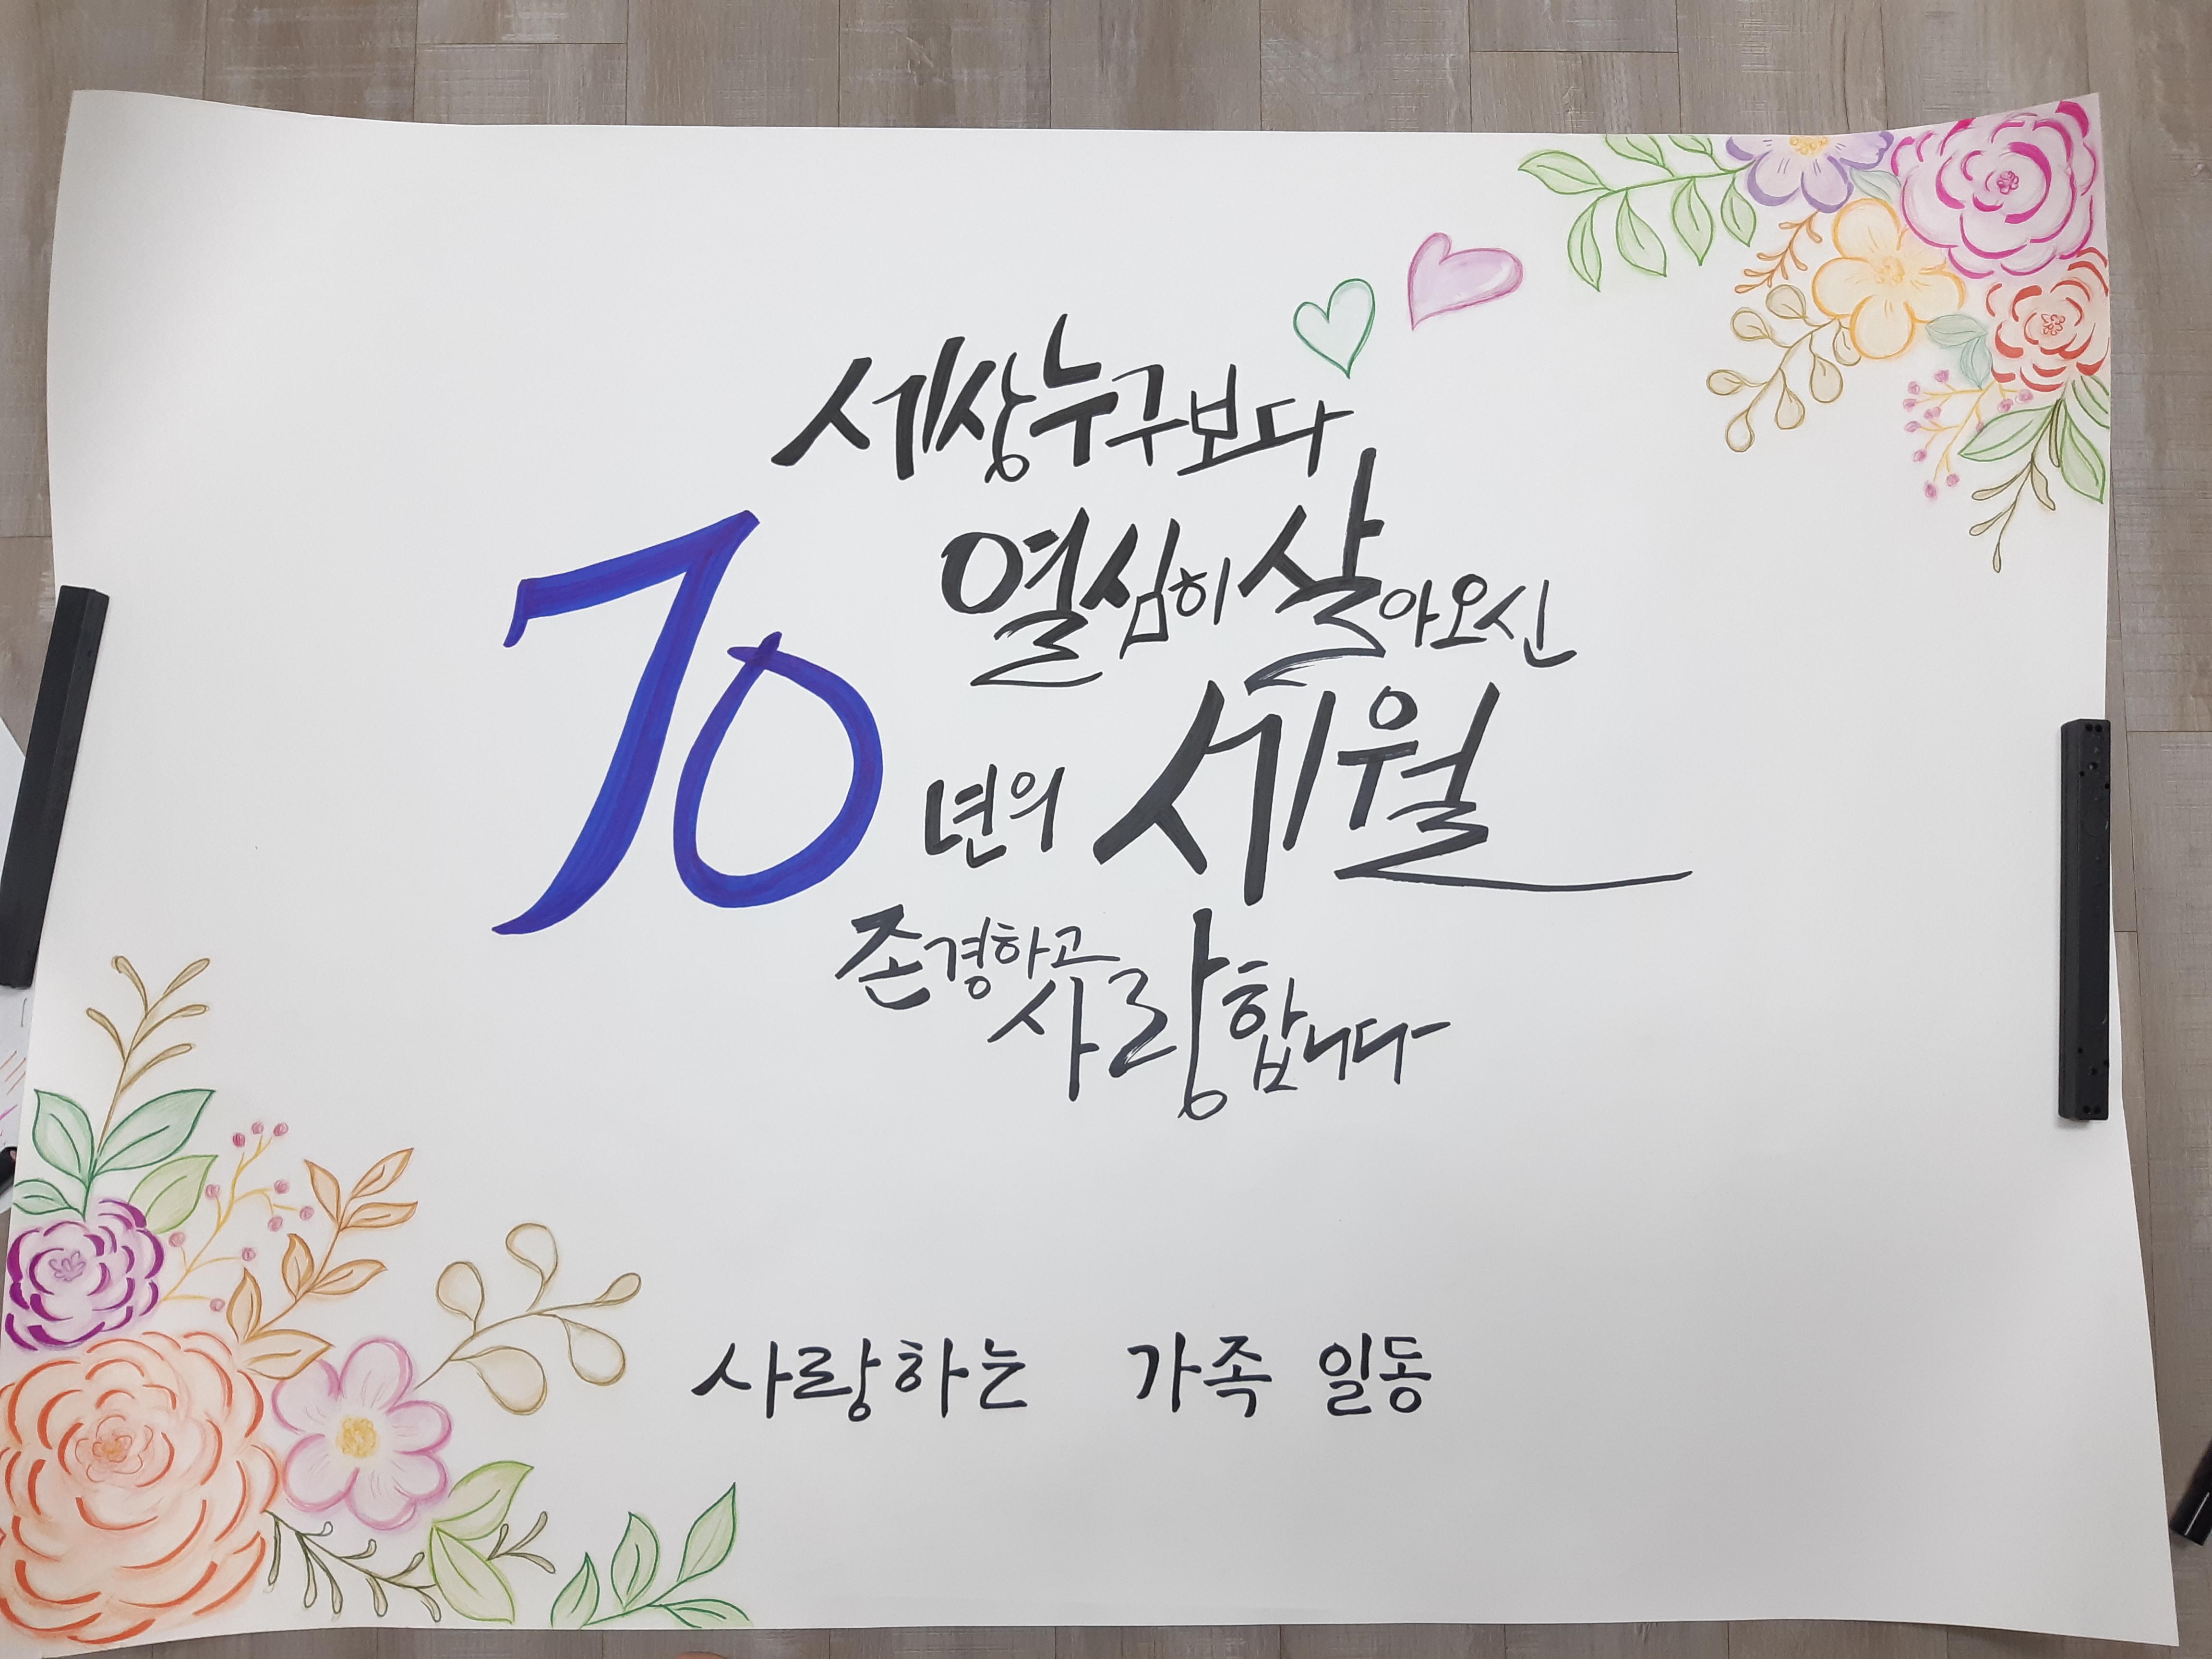 세상누구보다
열심히 살아오신
70년의 세월
존경하고
사랑합니다
사랑하는 가족 일동